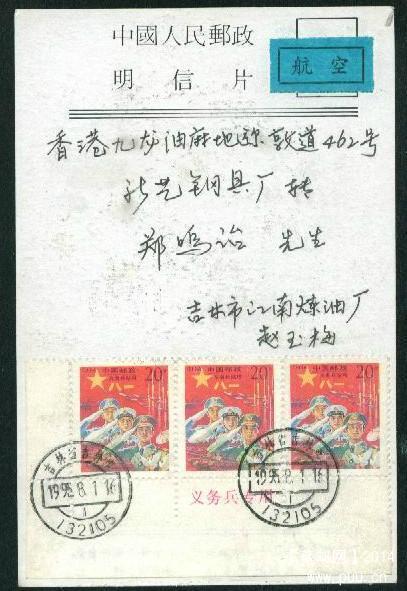 中國人民郵政
航空
明信片
香港九龙油麻地弥敦道462号
新艺钢具厂转
郑鸣诒 先生
吉林市江南炼油厂
赵玉梅
20 中国邮政
八一
20 中国邮政
八一
20 中国邮政
八一
1995.8.1.16
132105
1995.8.1.16
132105
义务兵专用
2014
www.puu.cn